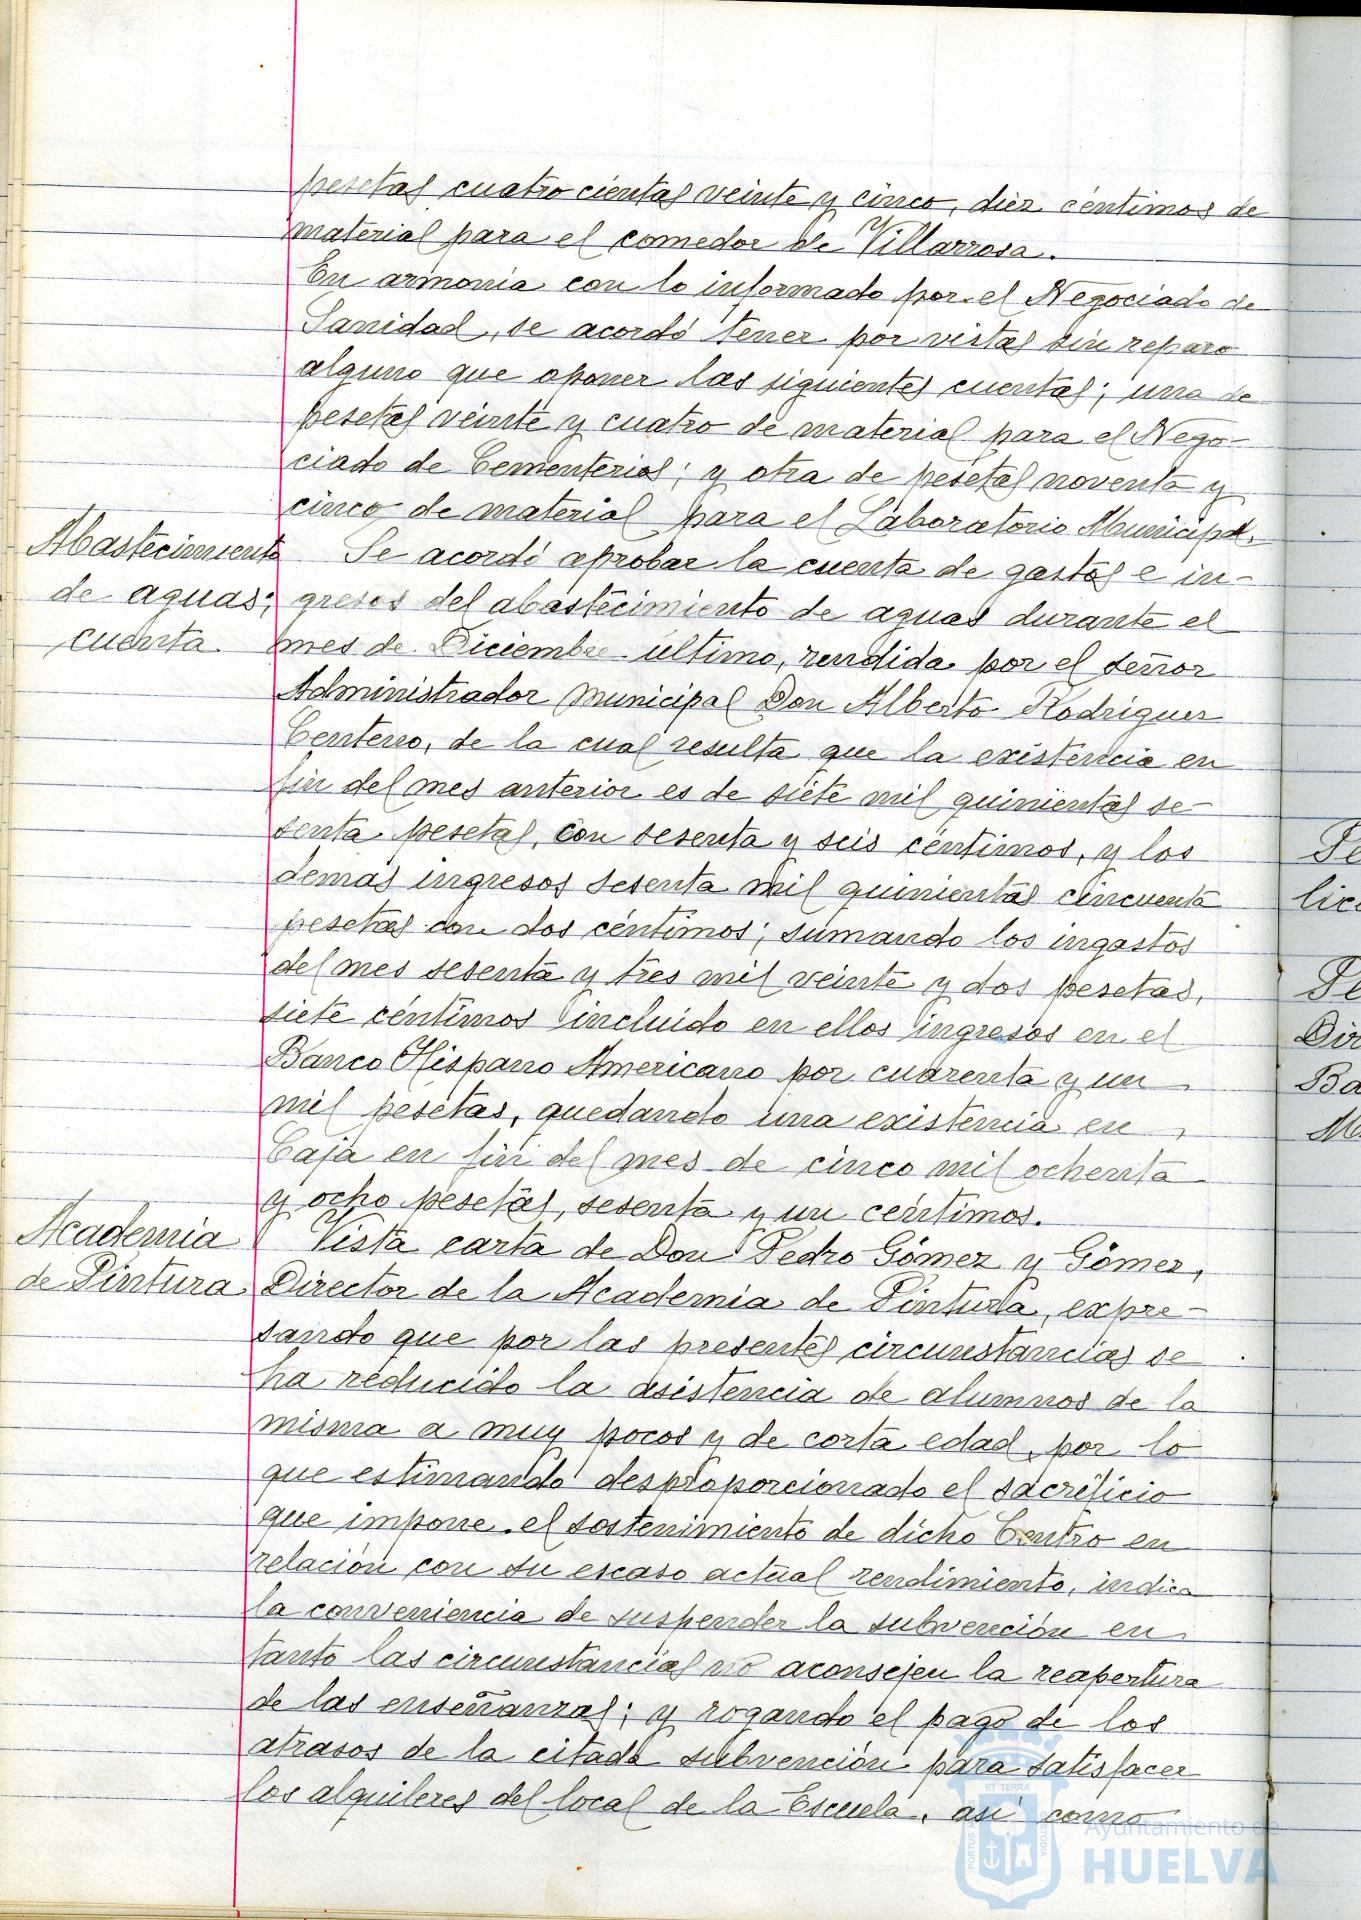 pesetas cuatrocientas veinte y cinco, diez céntimos de
material para el comedor de Villarrosa.
En armonía con lo informado por el Negociado de
Sanidad, se acordó tener por vistas sin reparo
alguno que oponer las siguientes cuentas; una de
pesetas veinte y cuatro de material para el Nego-
ciado de Cementerios; y otra de pesetas noventa y
cinco de material para el Laboratorio Municipal.
Abastecimiento
de aguas;
cuenta.
Se acordó aprobar la cuenta de gastos e in-
gresos del abastecimiento de aguas durante el
mes de Diciembre último, rendida por el señor
Administrador municipal Don Alberto Rodríguez
Centeno, de la cual resulta que la existencia en
fin del mes anterior es de siete mil quinientas se-
senta pesetas, con sesenta y seis céntimos, y los
demás ingresos sesenta mil quinientas cincuenta
pesetas con dos céntimos; sumando los ingastos
del mes sesenta y tres mil veinte y dos pesetas,
siete céntimos incluido en ellos ingresos en el
Banco Hispano Americano por cuarenta y un
mil pesetas, quedando una existencia en
Caja en fin del mes de cinco mil ochenta
y ocho pesetas, sesenta y un céntimos.
Academia
de Pintura
Vista carta de Don Pedro Gómez y Gómez,
Director de la Academia de Pintura, expre-
sando que por las presentes circunstancias se
ha reducido la asistencia de alumnos de la
misma a muy pocos y de corta edad, por lo
que estimando desproporcionado el sacrificio
que impone el sostenimiento de dicho Centro en
relación con su escaso actual rendimiento, indica
la conveniencia de suspender la subvención en
tanto las circunstancias no aconsejen la reapertura
de las enseñanzas; y rogando el pago de los
atrasos de la citada subvención para satisfacer
los alquileres del local de la Escuela, así como
Pe
lice
Pe
Dir
Ba
M
ET TERRÆ
PORTUS
CUSTODIA
Ayuntamiento de
HUELVA